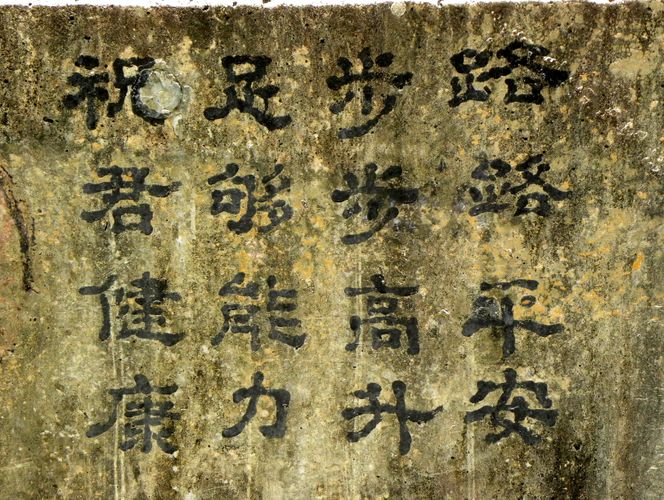 路路平安
步步高升
足够能力
祝君健康